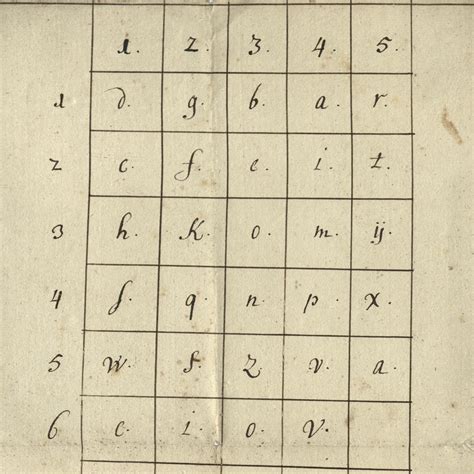 1. 2. 3. 4. 5.
1 d. g. b. a. r.
2 c. f. e. i. t.
3 h. K. o. m. ij.
4 l. q. n. p. x.
5 w. s. Z. v. a.
6 e. i. o. V.